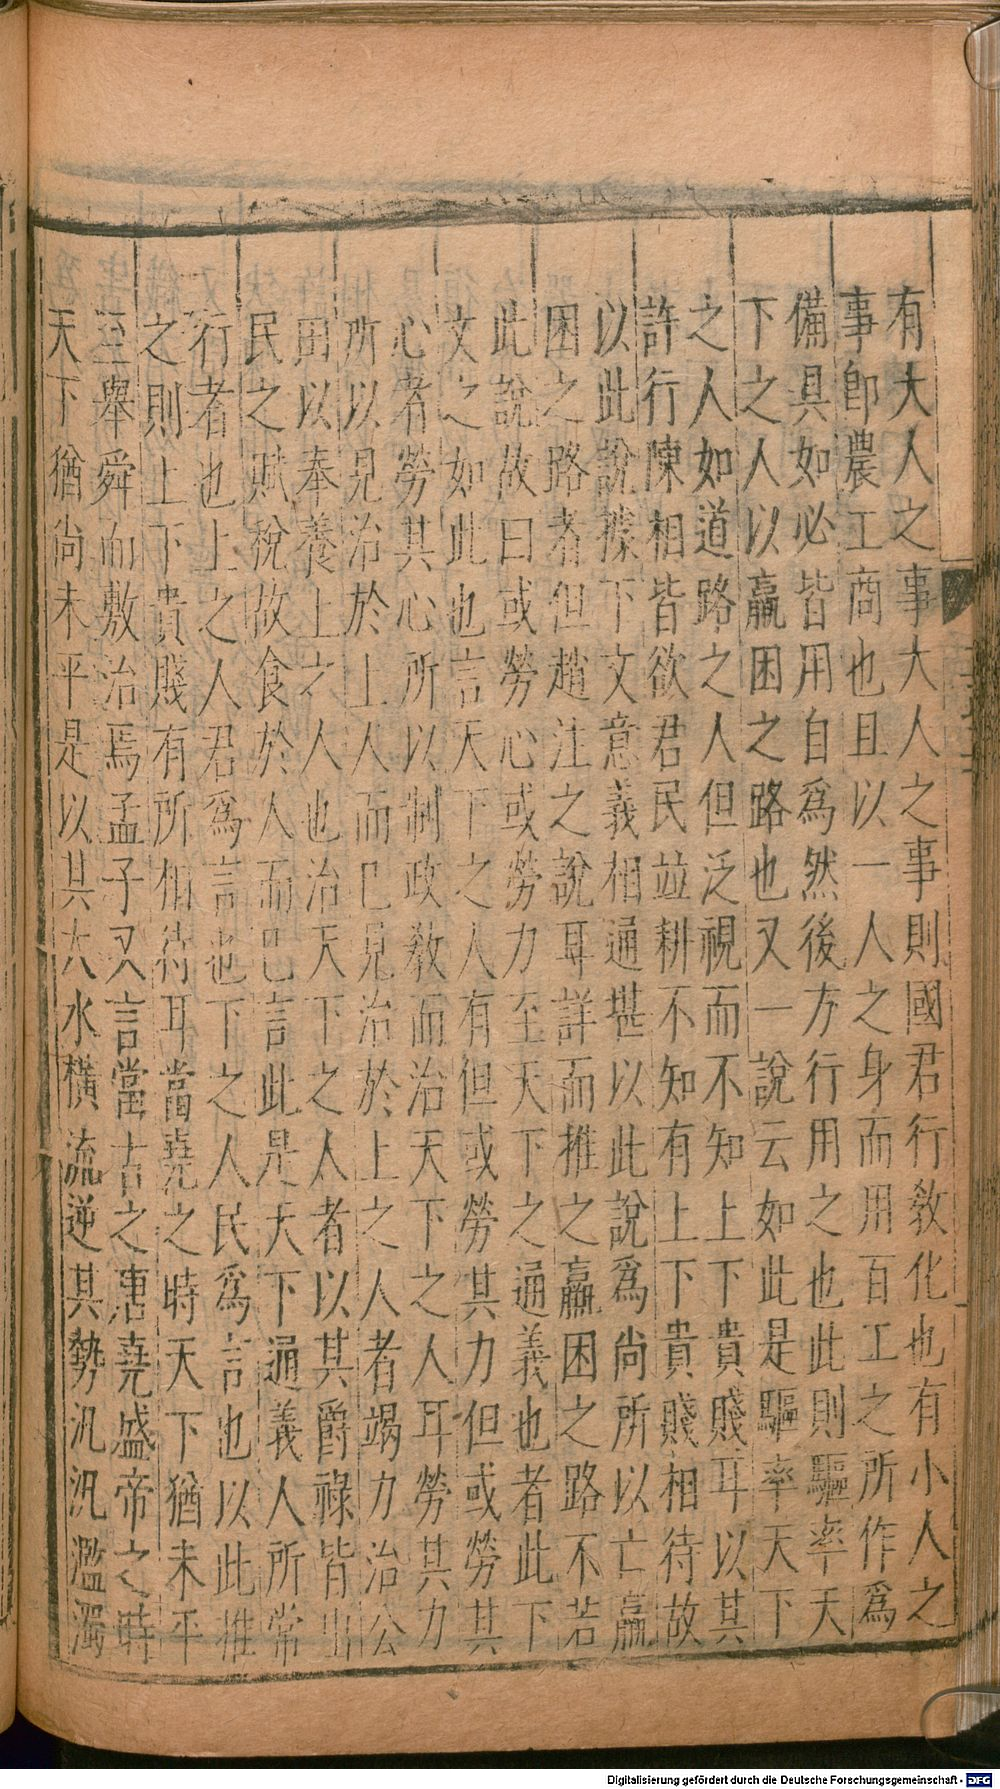 有大人之事大人之事則國君行敎化也有小人之
事卽農工商也且以一人之身而用百工之所作爲
備具如必皆用自爲然後方行用之也此則驅率天
下之人以羸困之路也又一說云如此是驅率天下
之人如道路之人但泛視而不知上下貴賤耳以其
許行陳相皆欲君民竝耕不知有上下貴賤相待故
以此說據下文意義相通堪以此說爲尚所以亡羸
困之路者但趙注之說耳詳而推之羸困之路不若
此說故曰或勞心或勞力至天下之通義也者此下
文之如此也言天下之人有但或勞其力但或勞其
心者勞其心所以制政敎而治天下之人耳勞其力
所以見治於上人而已見治於上之人者竭力治公
田以奉養上之人也治天下之人者以其爵祿皆出
民之賦稅故食於人而已言此是天下通義人所常
行者也上之人君爲言也下之人民爲言也以此推
之則上下貴賤有所相待耳當堯之時天下猶未平
至舉舜而敷治焉孟子又言當古之唐堯盛帝之時
天下猶尚未平是以其大水橫流逆其勢氾氾濫濁
Digitalisierung gefördert durch die Deutsche Forschungsgemeinschaft - DFG